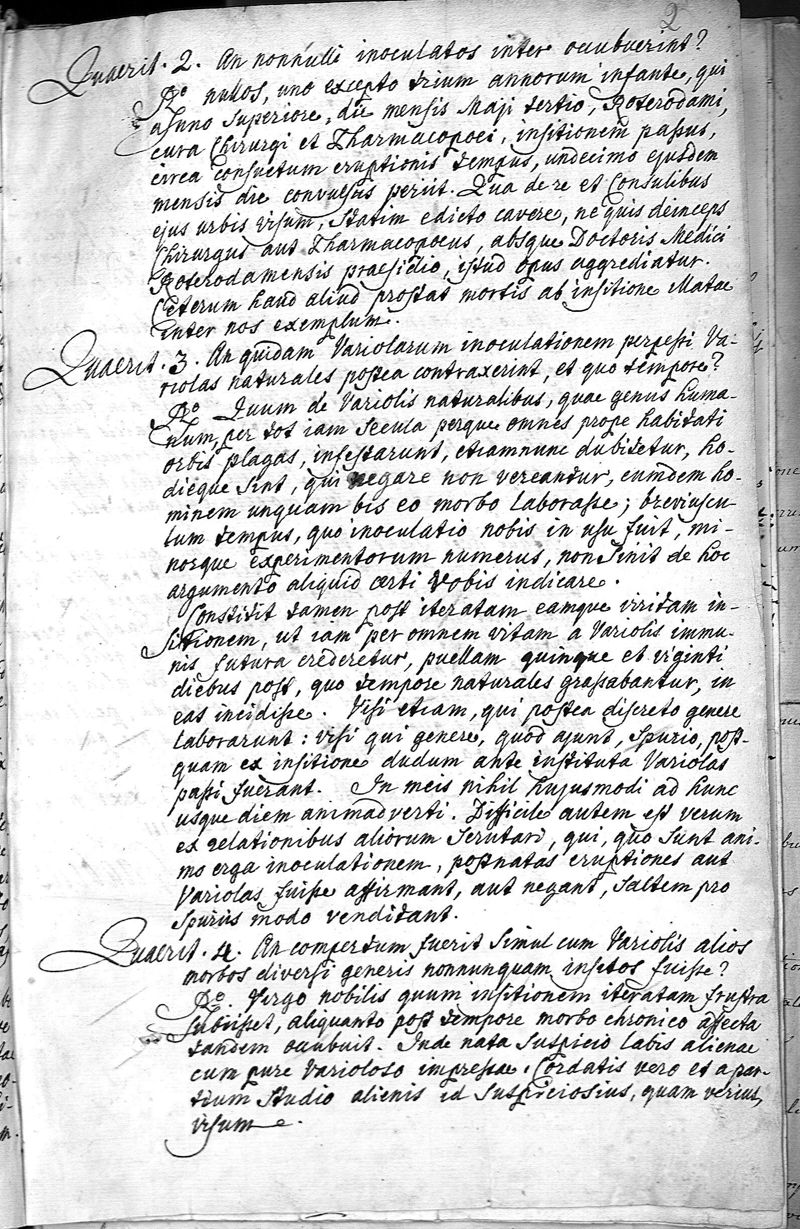 2
Quaerit. 2. An nonnulli inoculatos inter occubuerint?
Ro nullos, uno excepto trium annorum infante, qui
anno superiore, die mensis Maji tertio, Roterodami,
cura Chirurgi et Pharmacopoei, insitionem passus,
circa consuetum eruptionis tempus, undecimo ejusdem
mensis die convulsus periit. Qua de re et Consulibus
ejus urbis visum, statim edicto cavere, ne quis deinceps
Chirurgus aut Pharmacopoeus, absque Doctoris Medici
Roterodamensis praesidio, istud opus aggrediatur.
Ceterum haud aliud prostat mortis ab insitione Matae
inter nos exemplum.
Quaerit. 3. An quidam Variolarum inoculationem perpessi Va-
riolas naturales postea contraxerint, et quo tempore?
Ro Quum de Variolis naturalibus, quae genus huma-
num, per tot iam secula perque omnes prope habitati
orbis plagas, infestarunt, etiamnunc dubitetur, ho-
dieque sint, qui negare non vereantur, eumdem ho-
minem unquam bis eo morbo laborasse; breviuscu-
lum tempus, quo inoculatio nobis in usu fuit, mi-
norque experimentorum numerus, non sinit de hoc
argumento aliquid certi Vobis indicare.
Constitit tamen post iteratam eamque irritam in-
sitionem, ut iam per omnem vitam a Variolis immu-
nis futura crederetur, puellam quinque et viginti
diebus post, quo tempore naturales grassabantur, in
eas incidisse. Visi etiam, qui postea discreto genere
laborarunt: visi qui genere, quod ajunt, spurio, post-
quam ex insitione dudum ante instituta Variolas
passi fuerant. In meis nihil hujusmodi ad hunc
usque diem animadverti. Difficile autem est verum
ex relationibus aliorum scrutari, qui, quo sunt ani-
mo erga inoculationem, postnatas eruptiones aut
Variolas fuisse affirmant, aut negant, saltem pro
spuriis modo venditant.
Quaerit. 4. An compertum fuerit simul cum Variolis alios
morbos diversi generis nonnunquam insitos fuisse?
Ro. Virgo nobilis quum insitionem iteratam frustra
subiisset, aliquanto post tempore morbo chronico affecta
tandem occubuit. Inde nata suspicio labis alienae
cum pure Varioloso impressae. Cordatis vero et a par-
tium studio alienis id suspiciosius, quam verius,
visum.